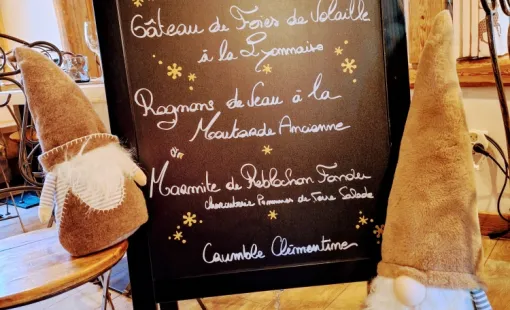 Gâteau de Foies de Volaille
à la Lyonnaise
Rognons de Veau à la
Moutarde Ancienne
ou
Marmite de Reblochon Fondu
Charcuterie Pommes de Terre Salade
Crumble Clémentine